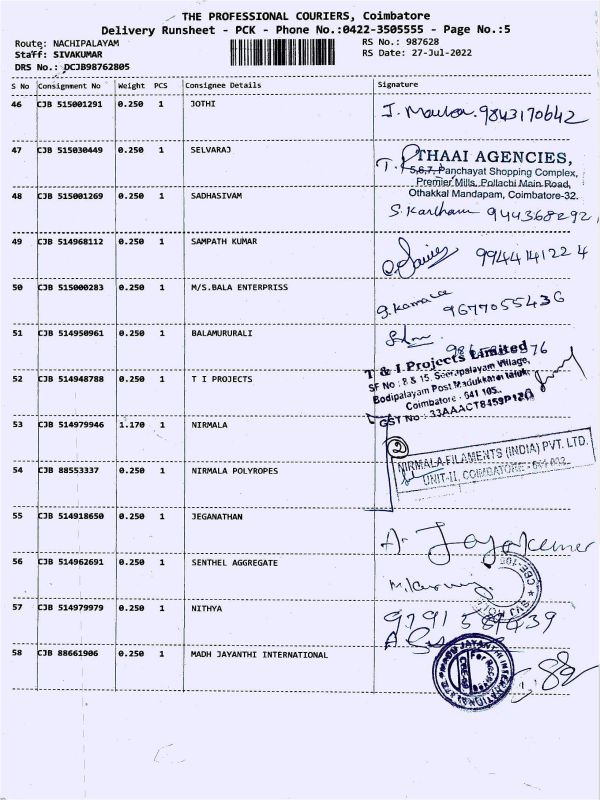 THE PROFESSIONAL COURIERS, Coimbatore
Delivery Runsheet - PCK - Phone No.:0422-3505555 - Page No.:5
Route: NACHIPALAYAM
RS No.: 987628
Staff: SIVAKUMAR
RS Date: 27-Jul-2022
DRS No.: DCJB98762805
S No Consignment No Weight PCS Consignee Details Signature
46 CJB 515001291 0.250 1 JOTHI
9843170642
47 CJB 515030449 0.250 1 SELVARAJ
THAAI AGENCIES,
5,6,7, Panchayat Shopping Complex,
Premier Mills, Pollachi Main Road,
Othakkal Mandapam, Coimbatore-32.
48 CJB 515001269 0.250 1 SADHASIVAM
S. Kartham 944368292
49 CJB 514968112 0.250 1 SAMPATH KUMAR
9944141224
50 CJB 515000283 0.250 1 M/S.BALA ENTERPRISS
9677055436
51 CJB 514950961 0.250 1 BALAMURURALI
52 CJB 514948788 0.250 1 T I PROJECTS
T & I Projects Limited
SF No : 8 & 15, Seerapalayam Village,
Bodipalayam Post Madukkarai Taluk,
Coimbatore - 641 105.
GST No : 33AAACT8459P1ZQ
53 CJB 514979946 1.170 1 NIRMALA
2
54 CJB 88553337 0.250 1 NIRMALA POLYROPES
NIRMALA FILAMENTS (INDIA) PVT. LTD.
UNIT-II, COIMBATORE - 641 032.
55 CJB 514918650 0.250 1 JEGANATHAN
A. Jayakumar
56 CJB 514962691 0.250 1 SENTHEL AGGREGATE
57 CJB 514979979 0.250 1 NITHYA
58 CJB 88661906 0.250 1 MADH JAYANTHI INTERNATIONAL
MADHU JAYANTHI INTERNATIONAL